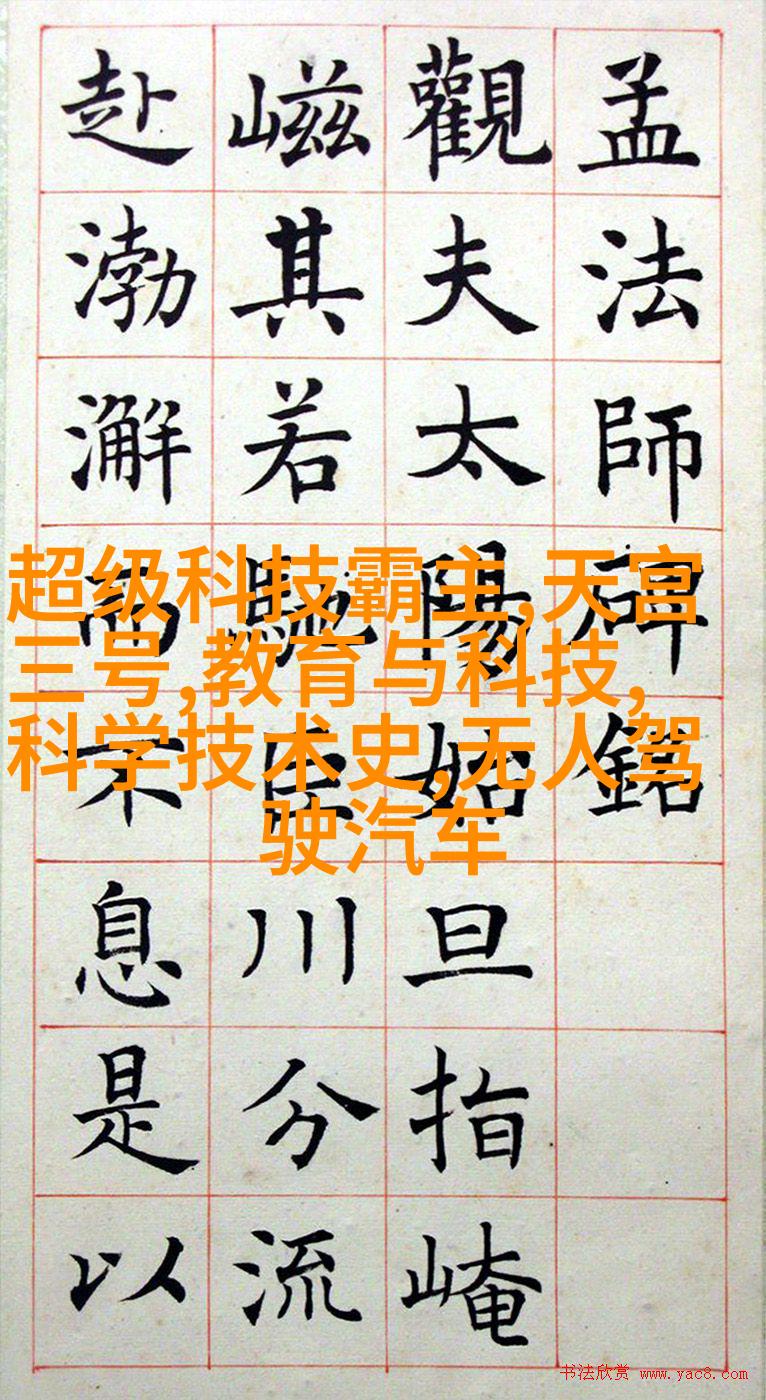 孟法師碑銘
觀夫太陽始旦指崦
嵫其若馳川分流
赴渤澥而不息是以
超级科技霸主,天宫
三号,教育与科技,
科学技术史,无人驾
驶汽车
书法欣赏 www.yac8.com